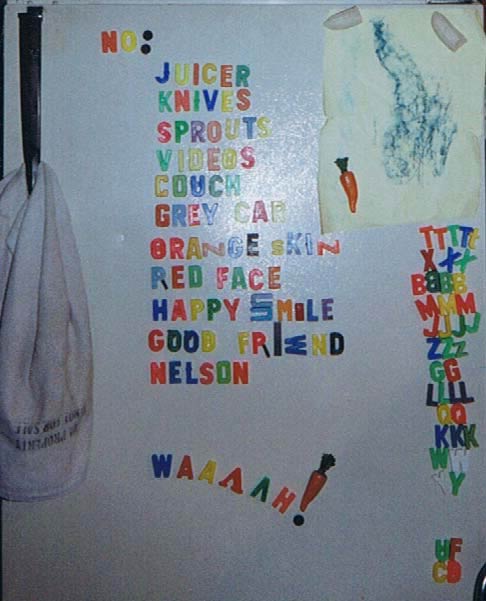 NO:
JUICER
KNIVES
SPROUTS
VIDEOS
COUCH
GREY CAR
ORANGE SKIN
RED FACE
HAPPY SMILE
GOOD FRIEND
NELSON
WAAAAH!
TTTTt
X++
BBBB
MMMM
JJJJ
ZZZ
GG
LLLL
QQ
KKK
W
Y
UF
CD
PROPERTY
NOT FOR SALE